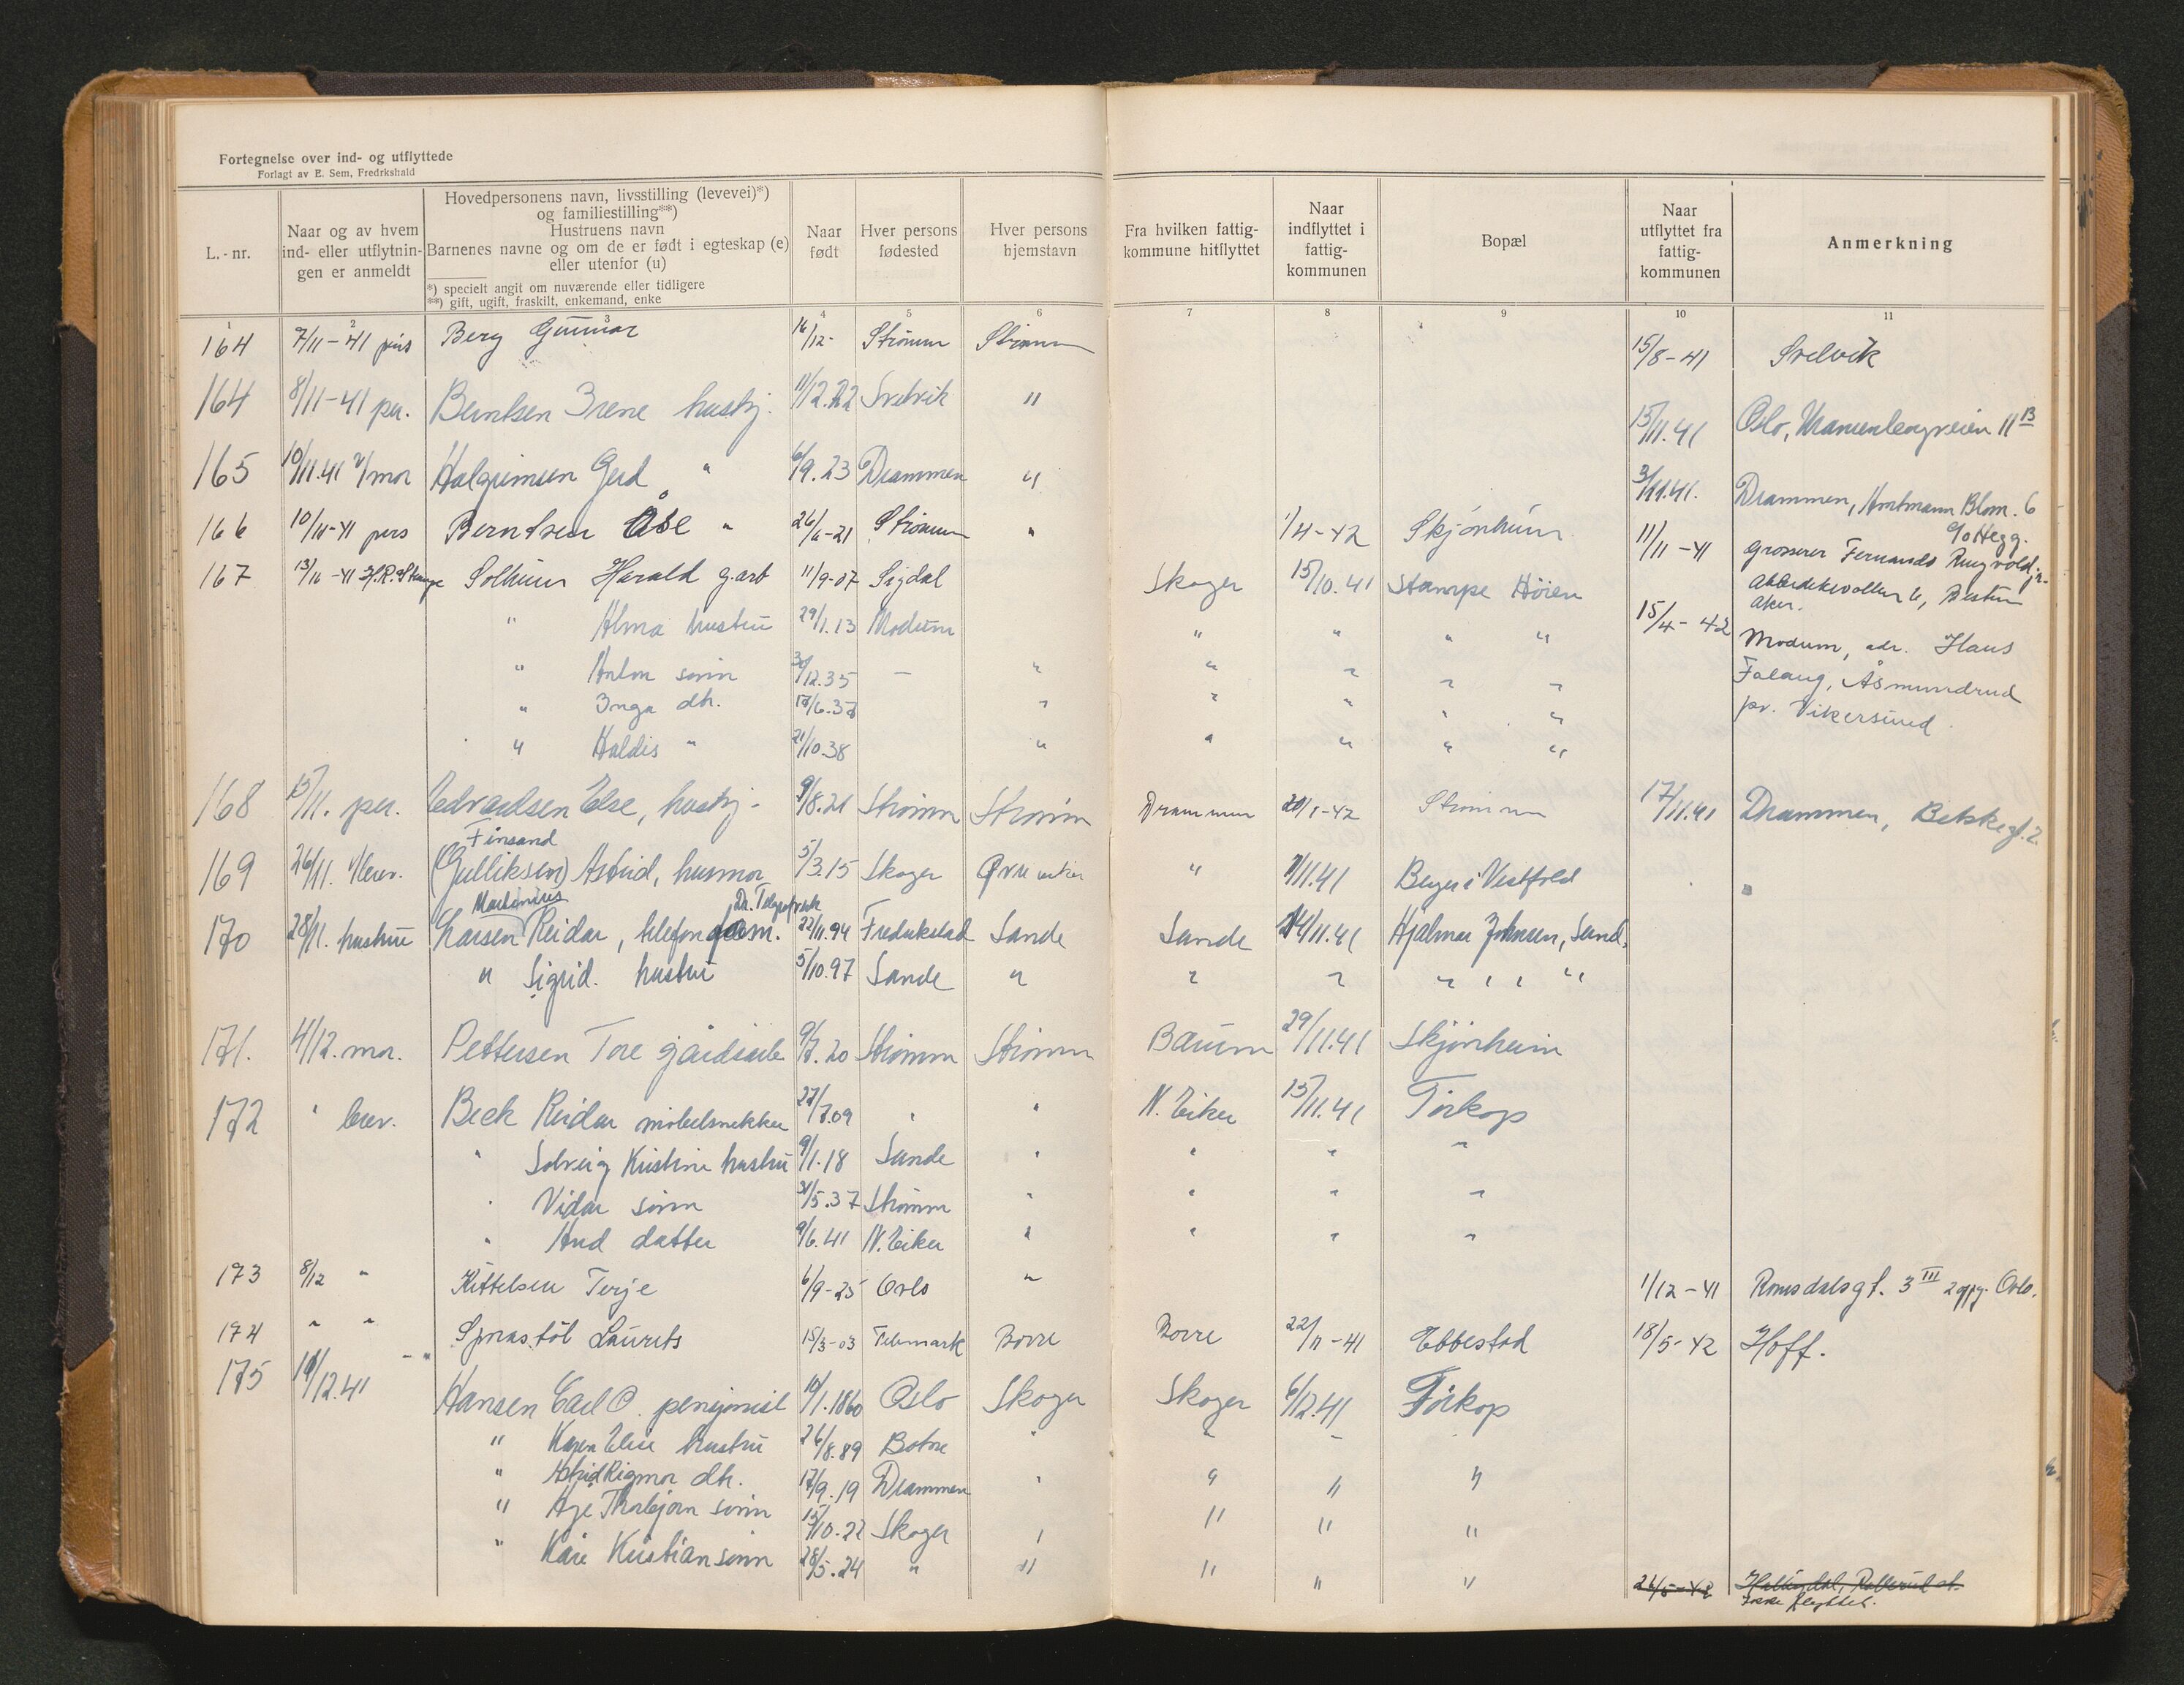 Fortegnelse over ind- og utflyttede
Forlagt av E. Sem, Fredrkshald
L.-nr.
Naar og av hvem ind- eller utflytnin-gen er anmeldt
Hovedpersonens navn, livsstilling (levevei)*)
og familiestilling**)
Hustruens navn
Barnenes navne og om de er født i egteskap (e)
eller utenfor (u)
*) specielt angit om nuværende eller tidligere
**) gift, ugift, fraskilt, enkemand, enke
Naar født
Hver persons fødested
Hver persons hjemstavn
Fra hvilken fattig-kommune hitflyttet
Naar indflyttet i fattig-kommunen
Bopæl
Naar utflyttet fra fattig-kommunen
Anmerkning
1 2 3 4 5 6 7 8 9 10 11
164 7/11-41 pers Berg Gunnar 16/12- Strømm Strømm 15/8-41 Svelvik
164 8/11-41 per. Berntsen Irene hushj. 11/12.22 Svelvik " 15/11.41 Oslo, Uranienborgveien 11 B
165 10/11.41 v/mor Halgrimsen Gerd " 6/9.23 Drammen " 3/11.41. Drammen, Amtmann Blom. 6
c/o Hegg.
166 10/11-41 pers Berntsen Åse " 26/6-21 Strømm " 1/4-42 Skjønheim 11/11-41 Grosserer Fernands Ringvold jr.
Abbedikvollen 6, Vestre
Aker.
167 13/11-41 H.R. Stampe Solheim Harald g.arb 11/9-07 Sigdal Skoger 15/10.41 Stampe Høien
" Alma hustru 29/1.13 Modum " " " " 15/4-42 Modum, adr. Hans
" Anton sønn 30/12.35 — " " " " " Falang, Åsmundrud
" Inga dtr. 17/6.37 " " " " " pr. Vikersund.
" Haldis " 21/10.38 " " " " "
168 15/11. per. Edvardsen Else, hushj. 9/8.21 Strømm Strømm Drammen 20/1-42 Strømm 17/11.41 Drammen, Betzkegt. 2.
Finsand
169 26/11. v/brev. (Gulliksen) Astrid, husmor 5/3.15 Skoger Øvre eiker " 1/11.41 Berger i Vestfold
Martinius Dr. Telegrafverk
170 28/11. hustru Larsen Reidar, telefonform. 22/11.94 Fredrikstad Sande Sande 14/11.41 Hjalmar Johnsen, Sand.
" Sigrid. hustru 5/10.97 Sande " " " " " " "
171. 4/12. mor. Pettersen Tore gårdsarb 9/7.20 Strømm Strømm Bærum 29/11.41 Skjønheim
172 " brev. Beck Reidar møbelsnekker 27/7.09 " " N. Eiker 15/11.41 Tørkop
" Solveig Kristine hustru 9/1.18 Sande " " " "
" Vidar sønn 31/5.37 Strømm " " " "
" Aud datter 9/6.41 N. Eiker " " " "
173 8/12 " Kittelsen Terje 6/9-25 Oslo " 1/12-41 Romsdalsgt. 3 III 2 oppg. Oslo.
174 " " Laurits 15/3-03 Telemark Borre Borre 22/11-41 Ebbestad 18/5-42 Hoff.
175 10/12.41 Hansen Carl O. pensjonist 10/1.1860 Oslo Skoger Skoger 6/12.41 Tørkop
" Karen Elise hustru 26/8.89 Botne " " "
" Astrid Rigmor dtr. 17/9.19 Drammen " " " "
" Age Thorbjørn sønn 15/10.22 Skoger " " " "
" Kåre Kristian sønn 28/5.24 " " " " " 26/5-42 Hallingdal, Rallerud st.
Ikke flyttet.